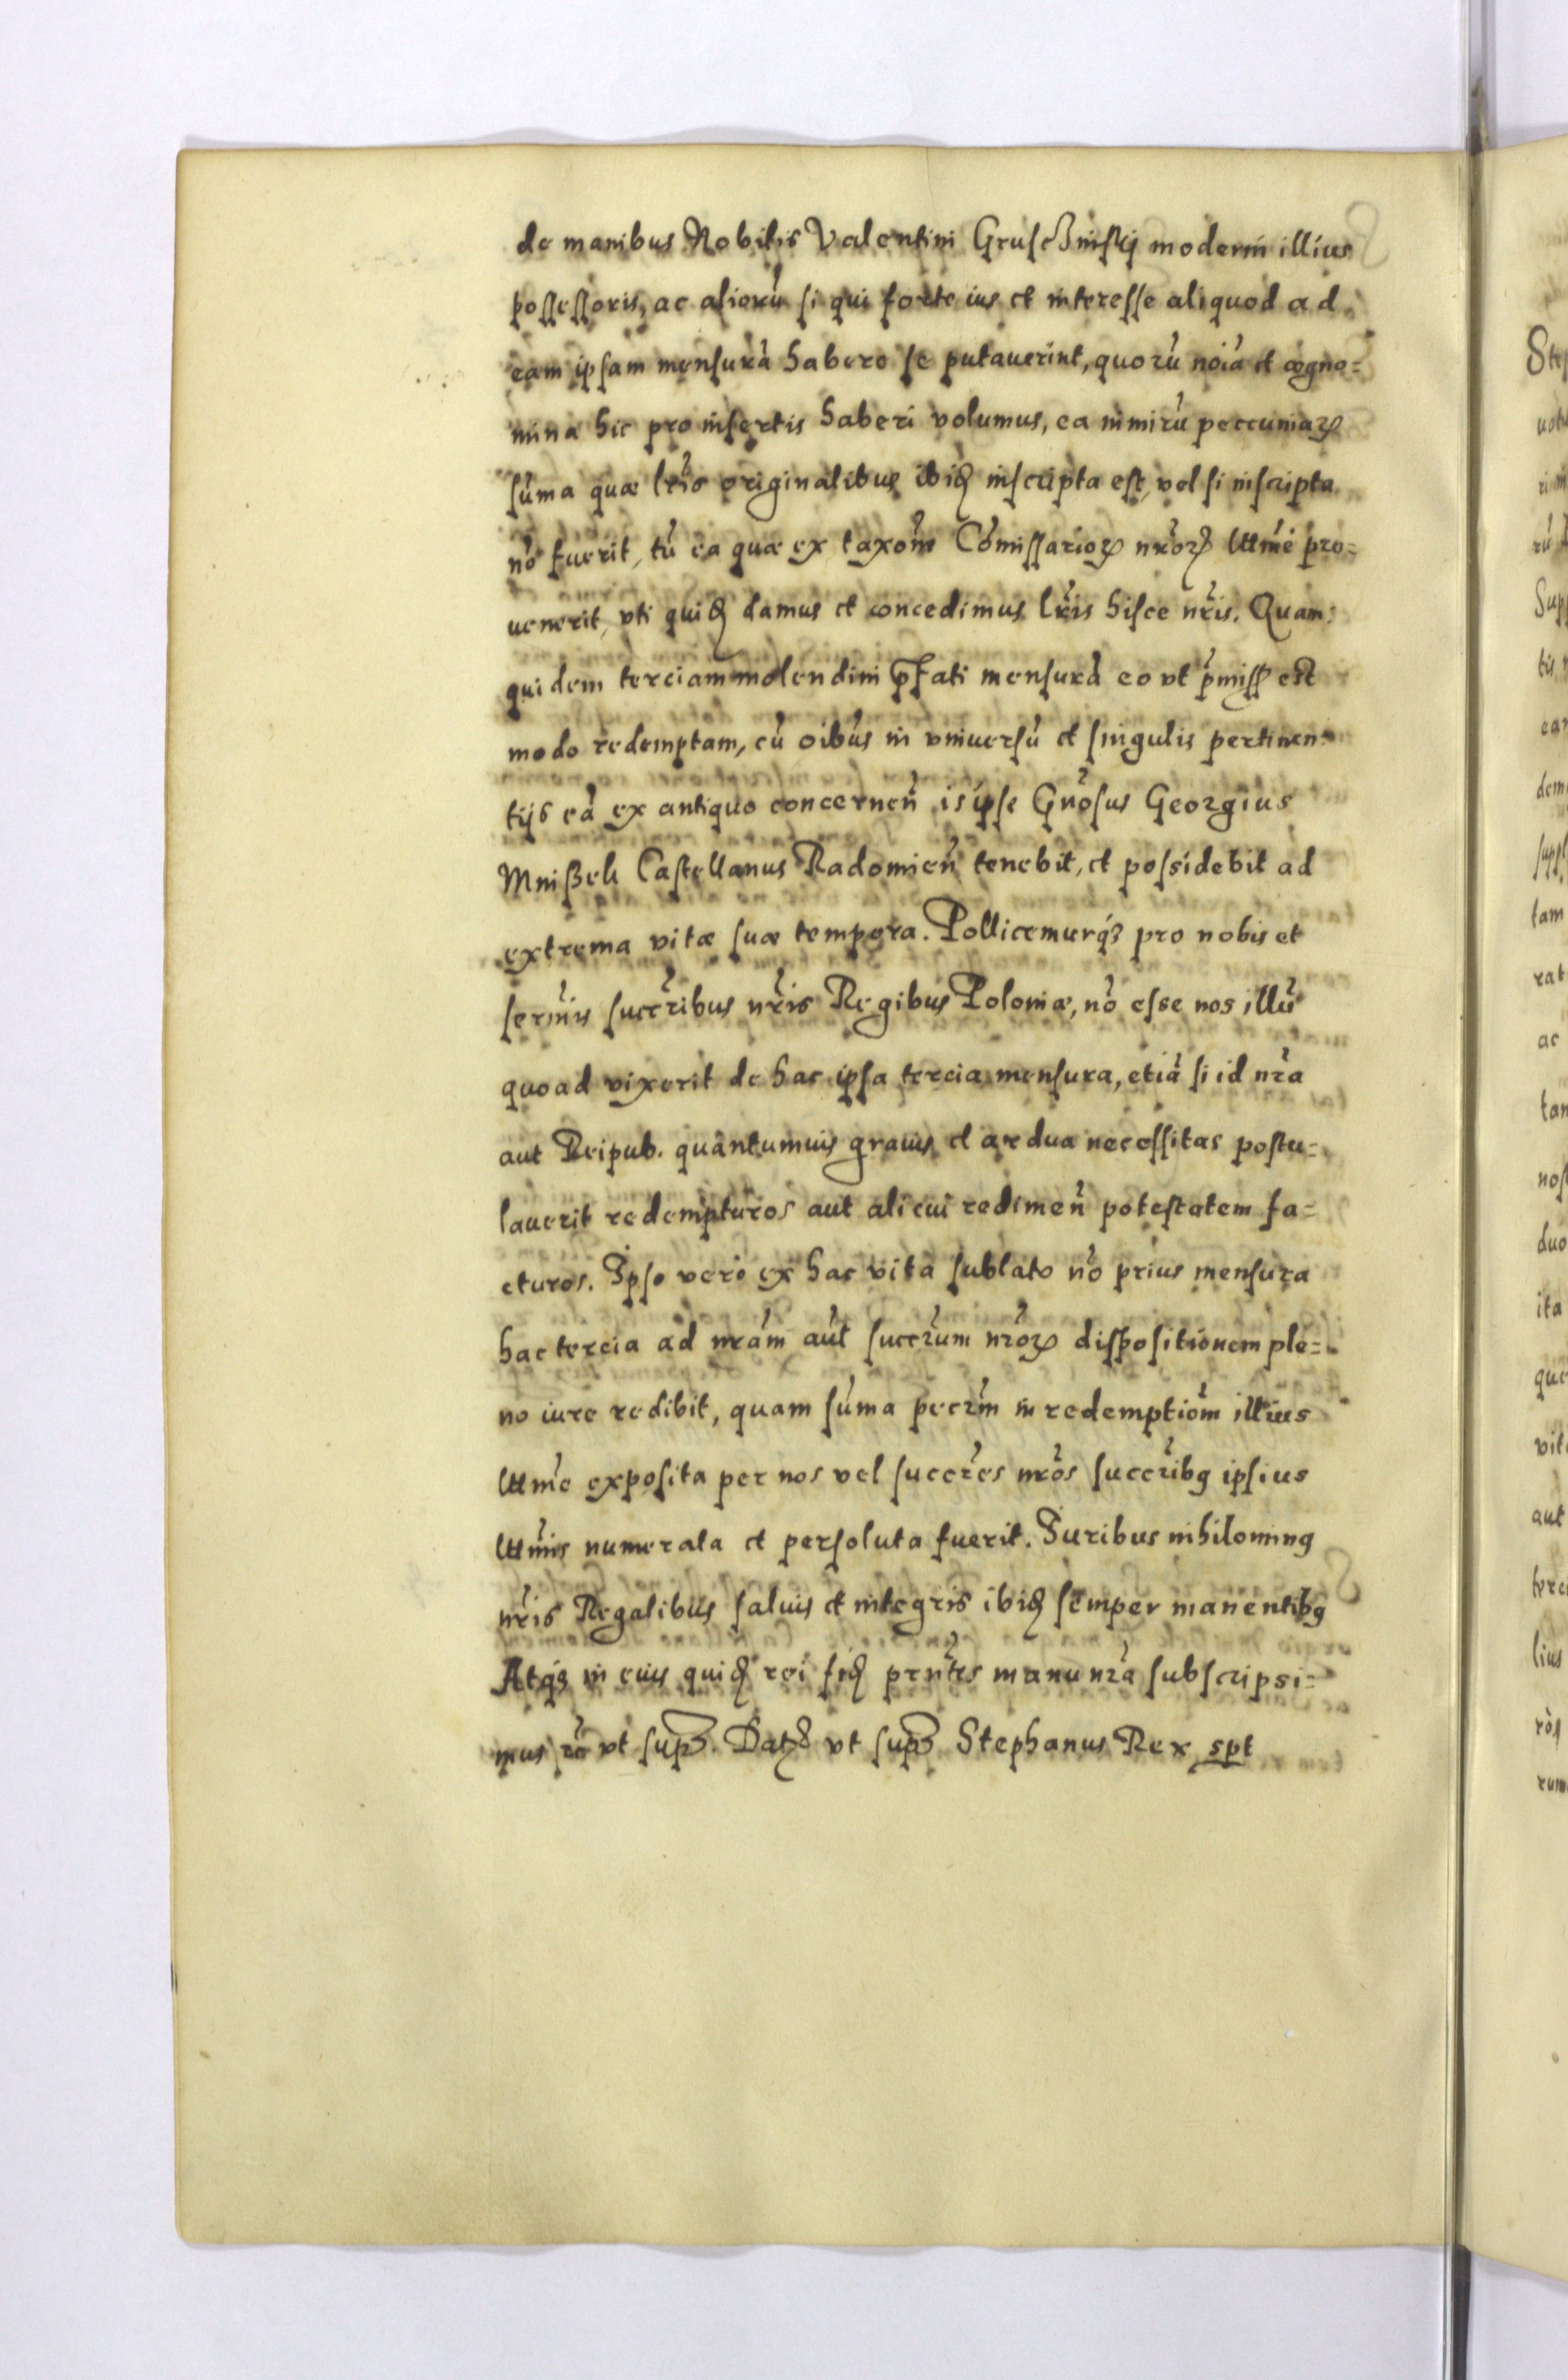 de manibus Nobilis Valentini Gruscżinskij moderni illius
possessoris, ac aliorũ si qui forte ius et interesse aliquod ad
eam ipsam mensurã habere se putauerint, quorũ noĩa et cogno=
mina hic pro insertis haberi volumus, ea nimirũ peccuniarꝝ
sũma quæ lr̃is originalibus ibiꝺ inscripta est, vel si inscripta
nõ fuerit, tũ ea quæ ex taxoñe Cõmissariorꝝ nr̃orꝝ Ultm̃e pro=
uenerit, vti quiꝺ damus et concedimus lr̃is hisce nr̃is. Quam
quidem terciam molendini p̃fati mensurã eo vt p̃miss est
modo redemptam, cũ oĩbus in vniuersũ et singulis pertinen=
tijs eã ex antiquo concerneñ is ipse Gñosus Georgius
Mnißek Castellanus Radomieñ tenebit, et possidebit ad
extrema vitæ suæ tempora. Pollicemurqꝫ pro nobis et
serm̃is succr̃ibus nr̃is Regibus Poloniæ, nõ esse nos illũ
quoad vixerit de hac ipsa tercia mensura, etiã si id nr̃a
aut Reipub. quantumuis grauis et ardua necessitas postu=
lauerit redempturos aut alicui redimeñ potestatem fa=
cturos. Ipso vero ex hac vita sublato nõ prius mensura
hac tercia ad nr̃am aut succr̃um nr̃orꝝ dispositionem ple=
no iure redibit, quam sũma pecr̃m in redemptiõm illius
exposita per nos vel succr̃es nr̃os succr̃ibꝯ ipsius
numerata et persoluta fuerit. Iuribus nihilominꝯ
nr̃is Regalibus saluis et integris ibiꝺ semper manentibꝯ
Atqꝫ in cuius quiꝺ rei fiꝺ prñtes manu nr̃a subscripsi=
mus rc̃ vt supꝛ. Datꝫ vt supꝛ Stephanus Rex spt